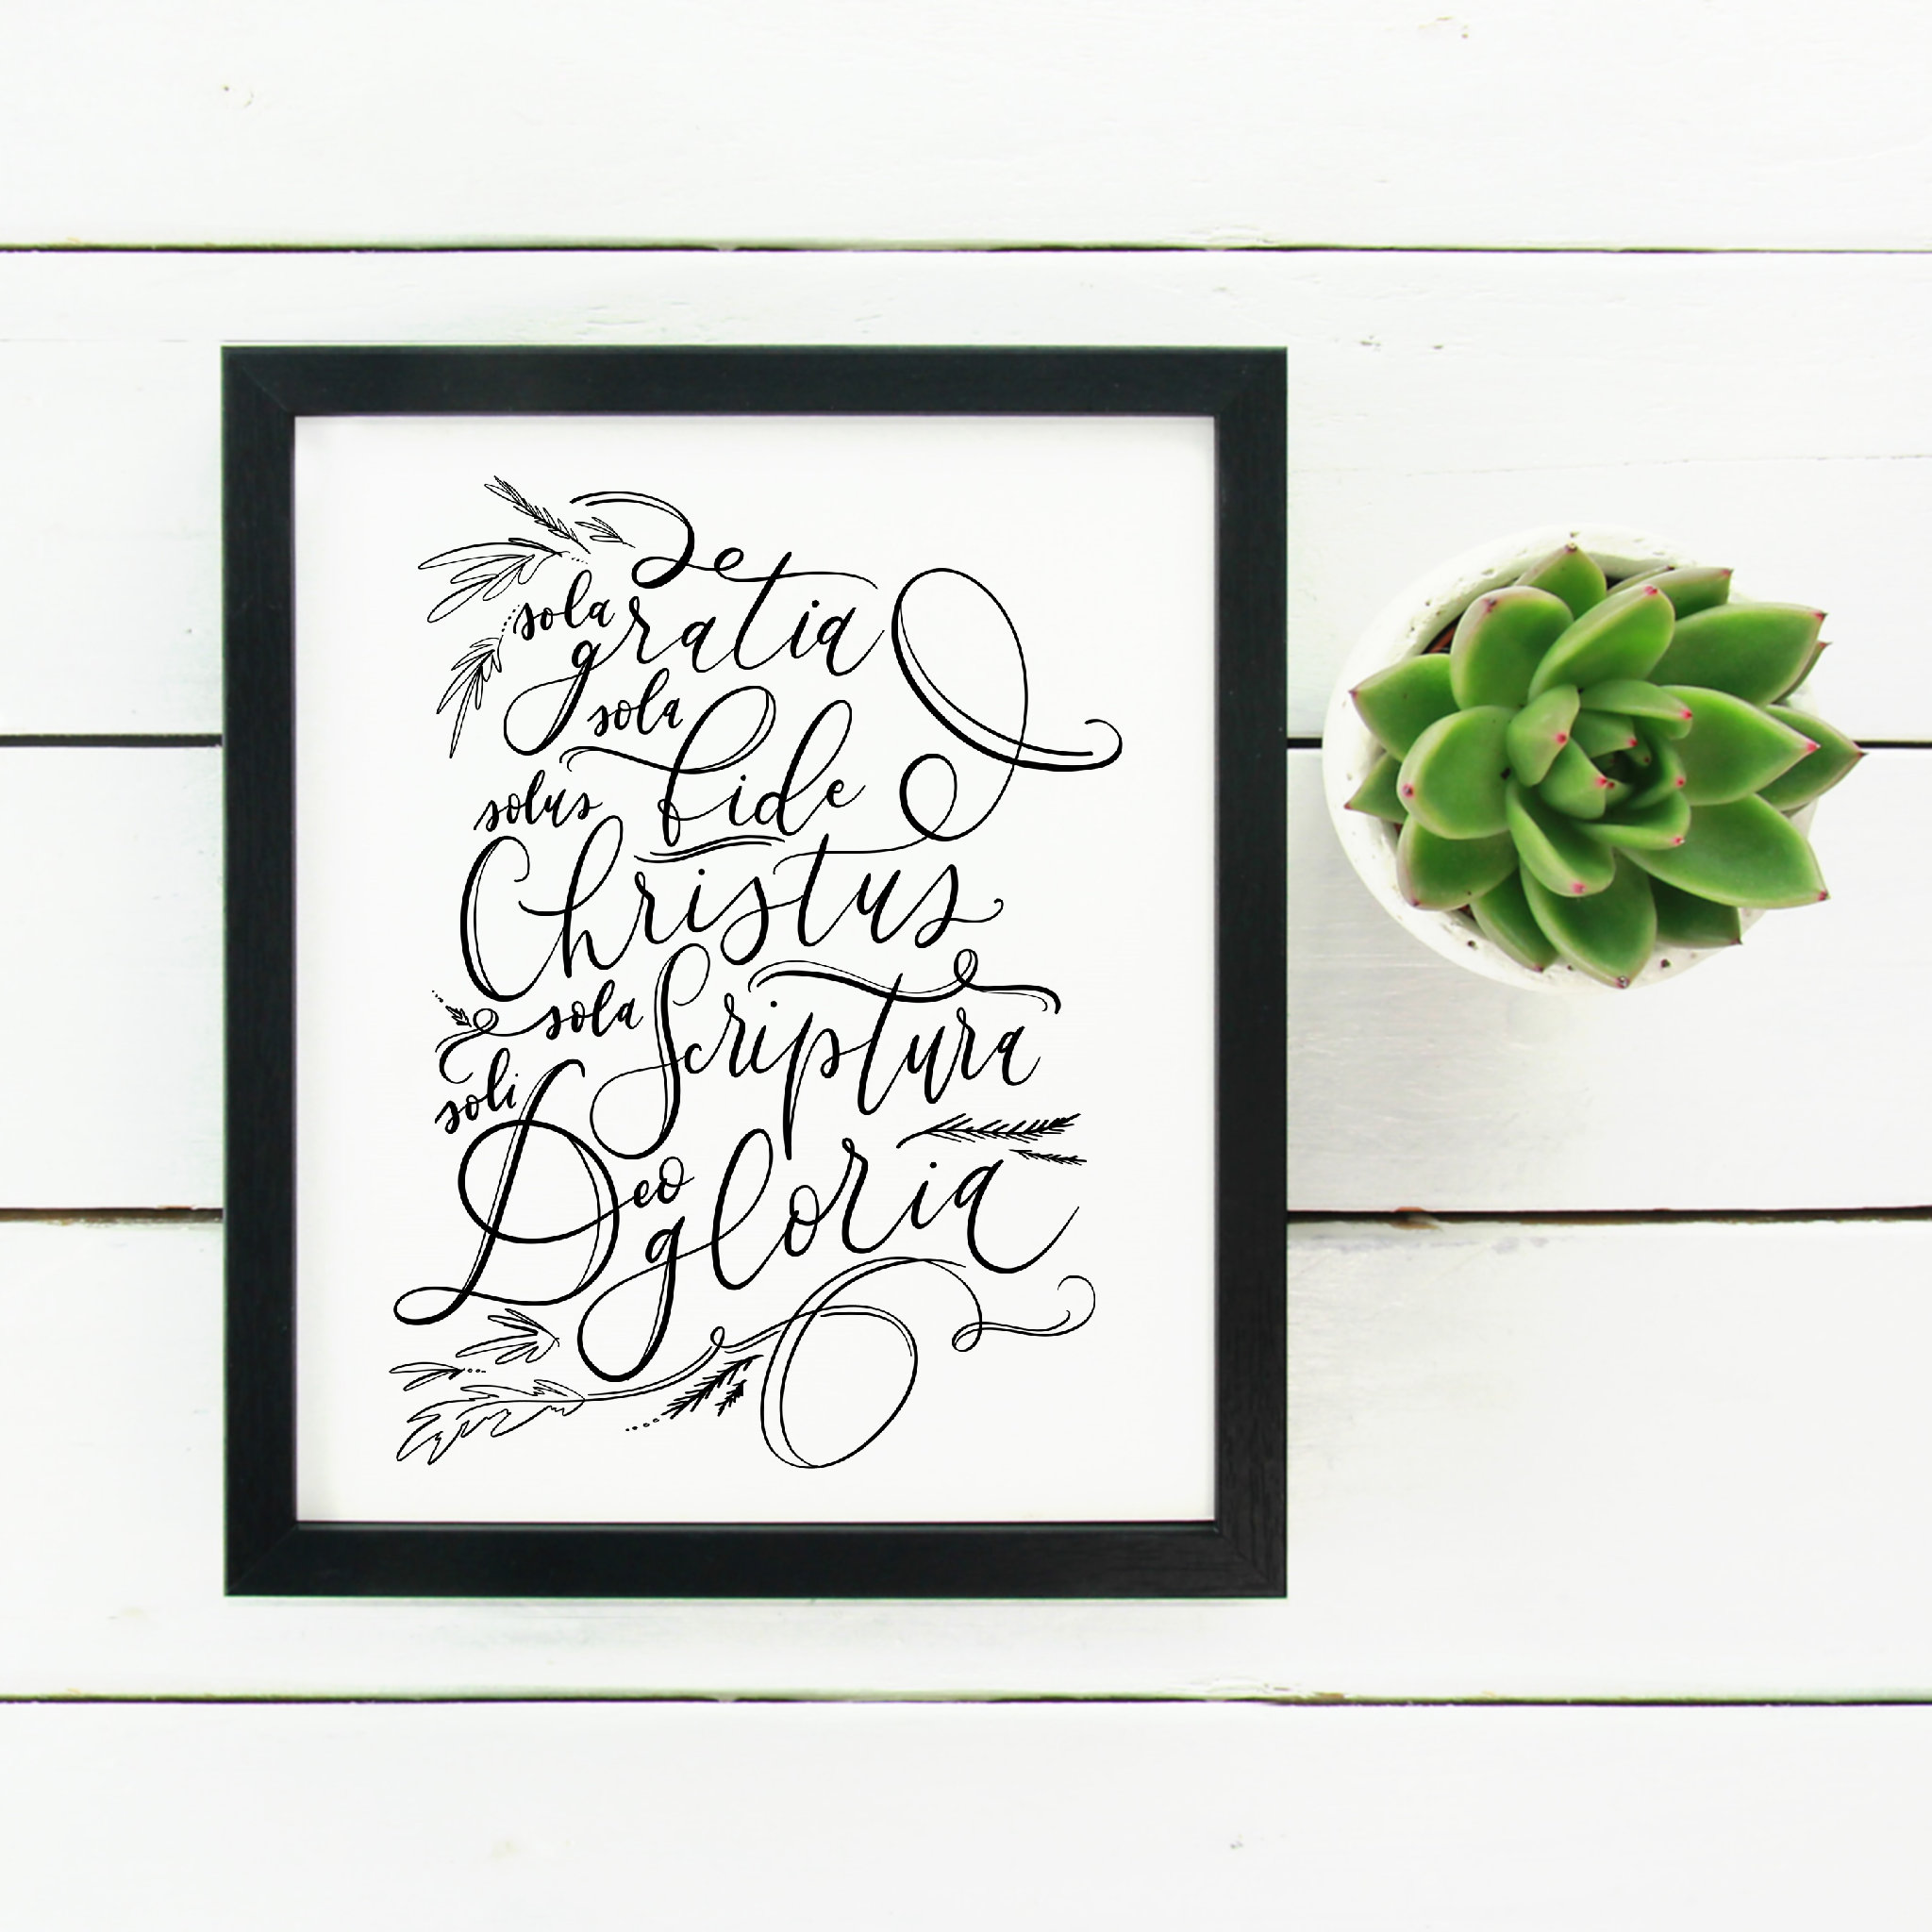 sola
gratia
sola
fide
solus
Christus
sola Scriptura
soli
Deo
gloria